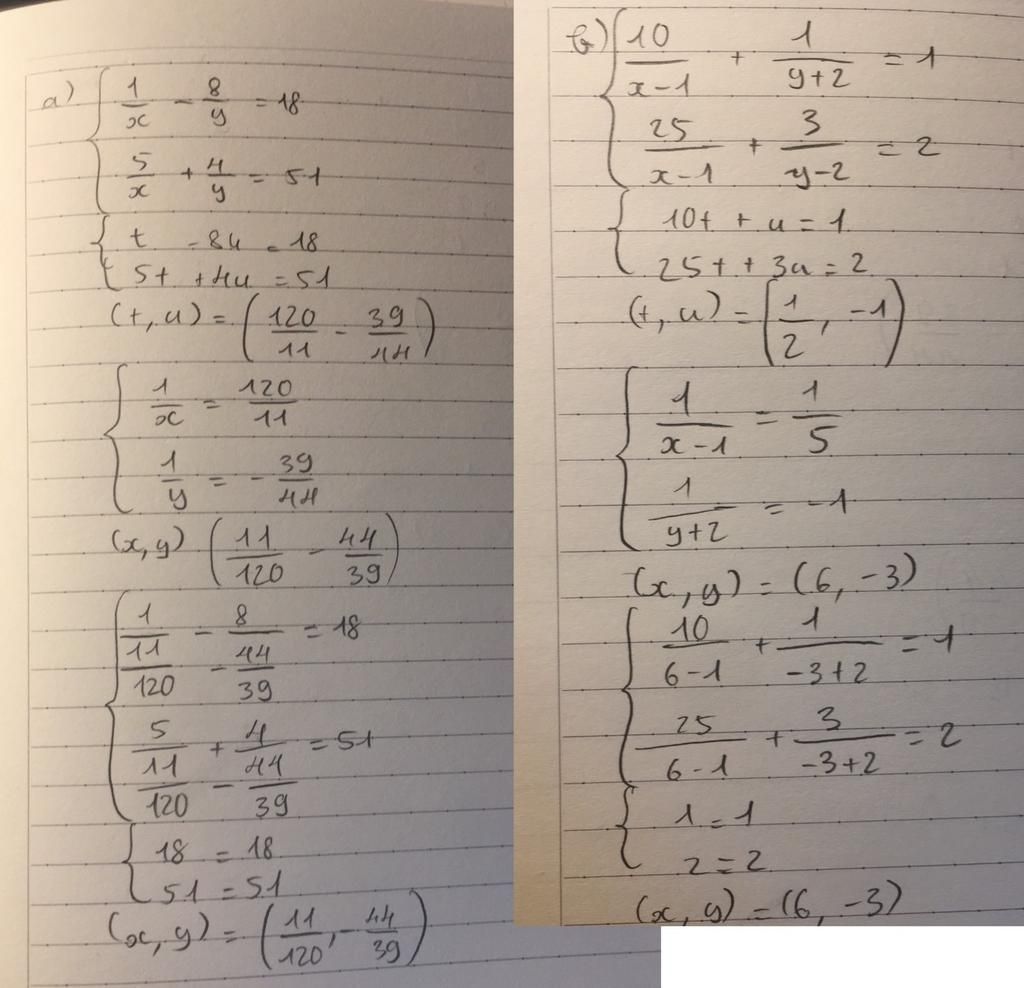 a) { 1/x - 8/y = 18
5/x + 4/y = 51
{ t - 8u = 18
5t + 4u = 51
(t, u) = (120/11 - 39/44)
{ 1/x = 120/11
1/y = - 39/44
(x, y) (11/120 - 44/39)
{ 1/(11/120) - 8/(- 44/39) = 18
5/(11/120) + 4/(- 44/39) = 51
{ 18 = 18
51 = 51
(x, y) = (11/120, - 44/39)
b) { 10/(x-1) + 1/(y+2) = 1
25/(x-1) + 3/(y-2) = 2
{ 10t + u = 1
25t + 3u = 2
(t, u) = (1/2, -1)
{ 1/(x-1) = 1/5
1/(y+2) = -1
(x, y) = (6, -3)
{ 10/(6-1) + 1/(-3+2) = 1
25/(6-1) + 3/(-3+2) = 2
{ 1 = 1
2 = 2
(x, y) = (6, -3)